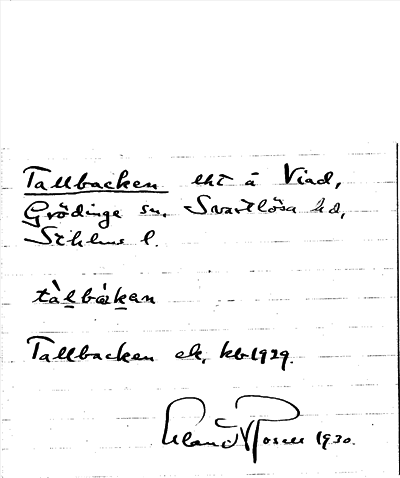 Tallbacken lht å Viad,
Grödinge sn. Svartlösa hd,
Sthlms l.
tàlbàkan
Tallbacken ek, kb 1929.
Erland Rosell 1930.